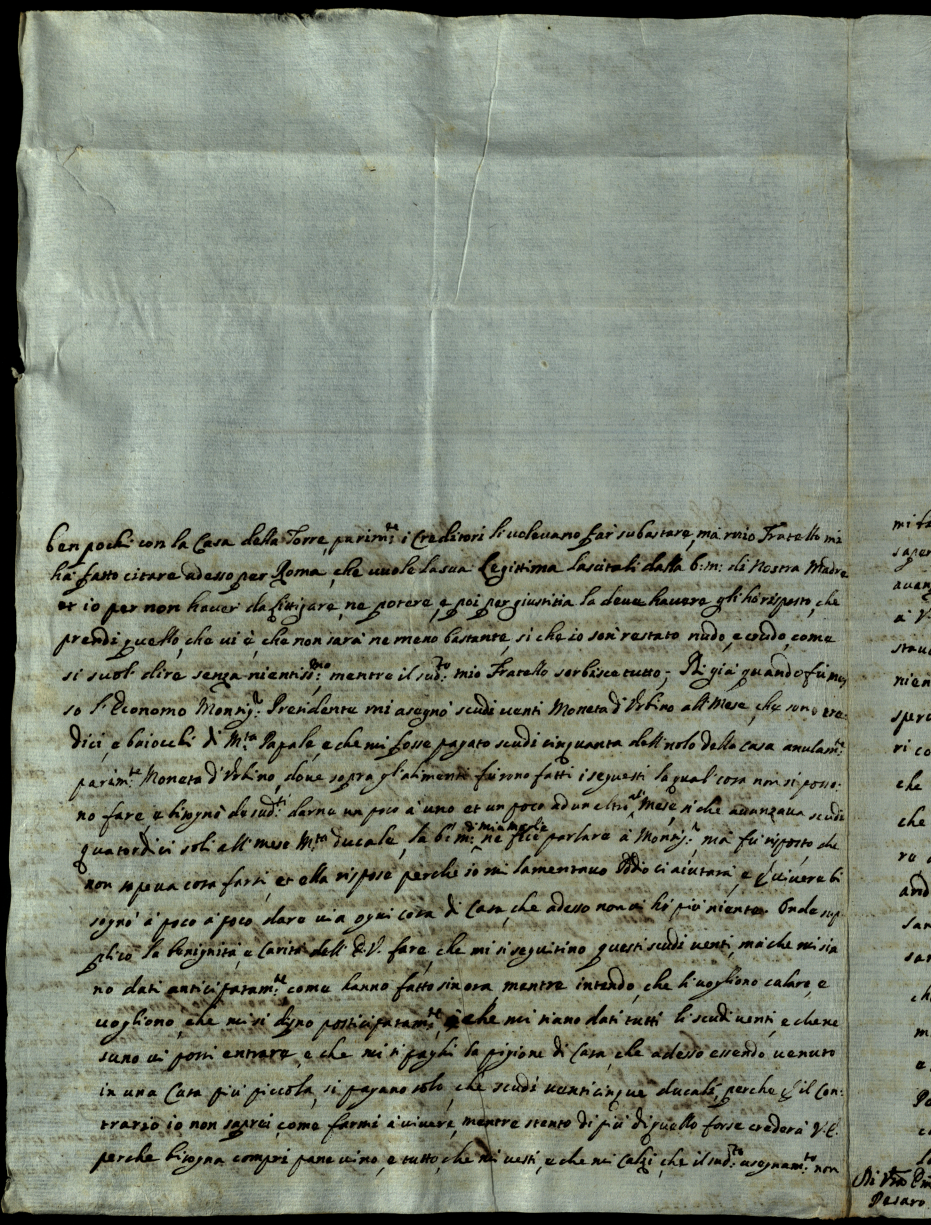 ben pochi con la Casa della Torre, parim:te i Creditori li volevano far subastare, mà mio Fratello mi
hà fatto citare adesso per Roma, che vuole la sua Legittima lascitali dalla b:m: di Nostra Madre
et io per non haver da litigare, ne potere, e poi per giustitia la deve havere gli hò risposto, che
prendi quello, che vi è, che non sarà ne meno bastante, si che io son restato nudo, e crudo, come
si suol dire senza nientiss:mo mentre il sud:to mio Fratello sorbisce tutto; Di già quando fù mes
so l'Economo Monsig:r Presidente mi asegnò scudi venti Moneta d'Urbino all Mese, che sono tre-
dici, e baiocchi di M:ta Papale, e che mi fosse pagato scudi cinquanta dell nolo della casa anualm:te
parim:te Moneta d'Urbino, dove sopra gl'alimenti furono fatti i sequesti la qual cosa non si posso-
no fare, e bisognò de sud:ti darne un poco à uno et un poco ad un altro al Mese, si che avanzava scudi
quatordici soli all mese M:ta ducale, la b: m: di mia moglie ne fece parlare à Monsig:r mà fù risposto che
non sapeva cosa farsi, et ella rispose perche io mi lamentavo Iddio ci aiutarà, e p vivere bi
sognò à poco à poco dare via ogni cosa di Casa, che adesso non vi hò più niente. Onde sup
plico la benignità, e Carità dell' E.V. fare, che mi si seguitino questi scudi venti, mà che mi sia
no dati anticipatam:te come hanno fatto sin ora mentre intendo, che li vogliono calare, e
vogliono, che mi si dijno posticipatam:te e che mi siano dati tutti li scudi venti, e che ne
suno vi possi entrare, e che mi si paghi la pigione di Casa, che adesso essendo venuto
in una Casa più piccola, si pagano solo, che scudi venticinque ducali, perche p il Con-
trario io non saprei come farmi à vivere, mentre stento di più di quello forse crederà V.E.
perche bisogna compri pane vino, e tutto, che mi vesti, e che mi Calzi, che il sud:to asegnam:to non
mi
saper
à V
nien
ri co
che
che
ch
Di V:ra Em
Pesaro